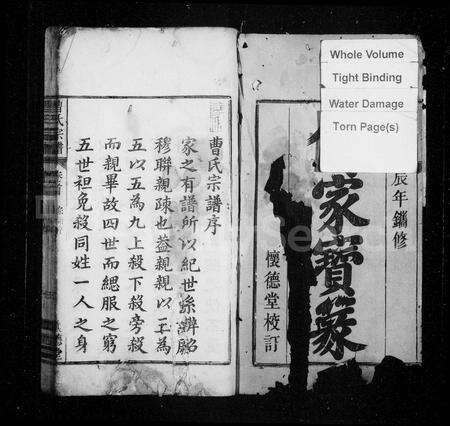 Whole Volume
Tight Binding
Water Damage
Torn Page(s)
辰年鐫修
家寶篆
懷德堂校訂
曹氏宗譜序
家之有譜所以紀世系辨昭
穆聯親疎也蓋親親以三為
五以五為九上殺下殺旁殺
而親畢故四世而緦服之窮
五世袒免殺同姓一人之身
氏宗譜